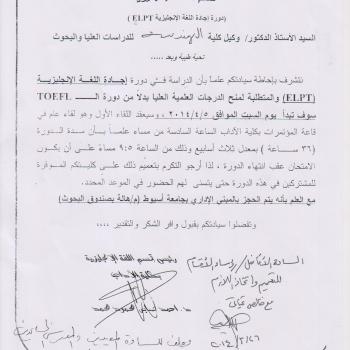 (دورة إجادة اللغة الإنجليزية ELPT)
السيد الأستاذ الدكتور/ وكيل كلية الهندسة للدراسات العليا والبحوث
تحية طيبة وبعد ...
نتشرف بإحاطة سيادتكم علما بأن الدراسة في دورة إجادة اللغة الإنجليزية
(ELPT) والمتطلبة لمنح الدرجات العلمية العليا بدلا من دورة الـ TOEFL
سوف تبدأ يوم السبت الموافق ٢٠١٤/٤/٥ ، وسيعقد اللقاء الأول وهو لقاء عام في
قاعة المؤتمرات بكلية الآداب الساعة السادسة من مساء علما بأن مدة الدورة
(٣٦ ساعة) بمعدل ثلاث أسابيع وذلك من الساعة ٩:٥ مساءً على أن يكون
الامتحان عقب انتهاء الدورة ، لذا أرجو التكرم بتعميم ذلك على كليتكم الموقرة
للمشتركين في هذه الدورة حتى يتسنى لهم الحضور في الموعد المحدد.
مع العلم بأنه يتم الحجز بالمبنى الإداري بجامعة أسيوط (م/هالة بصندوق البحوث)
وتفضلوا سيادتكم بقبول وافر الشكر والتقدير ...
رئيس قسم اللغة الإنجليزية
بكلية الآداب
السادة الأفاضل / رؤساء الأقسام
د. احمد